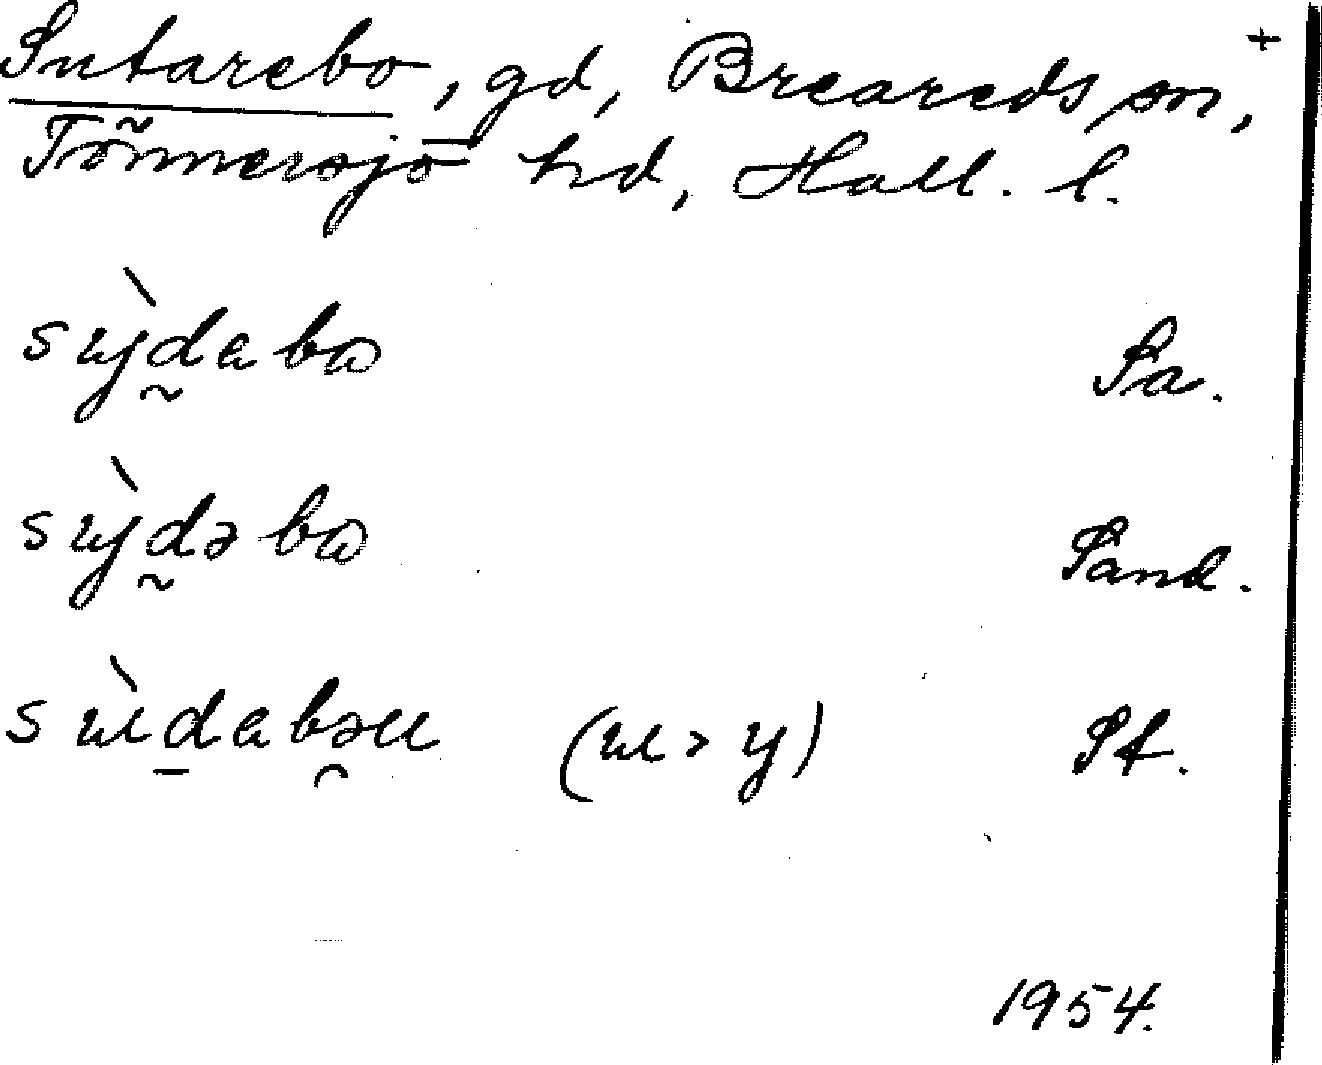 Sutarebo, gd, Breareds sn, +
Tönnersjö hd, Hall. l.
sỳd̰aba Sa.
sỳd̰əba Sand.
sùḏabəu (u > y) St.
1954.